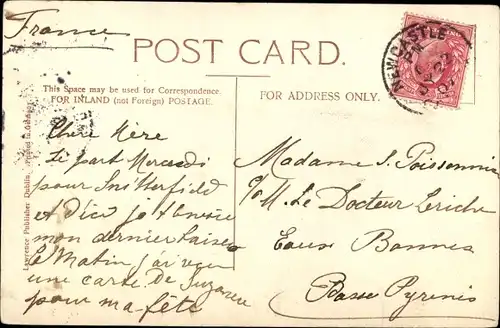 France
POST CARD.
NEWCASTLE
This Space may be used for Correspondence.
FOR INLAND (not Foreign) POSTAGE.
FOR ADDRESS ONLY.
Lawrence Publisher Dublin
Chère Mère
Je part Mercredi
pour Snitterfield
et d'ici je t'envoie
mon dernier baiser
le Matin j'ai reçu
une carte De Suzanne
pour ma fête
Madame S. Poissonnier
c/o M. Le Docteur Leriche
Eaux Bonnes
Basse Pyrenés